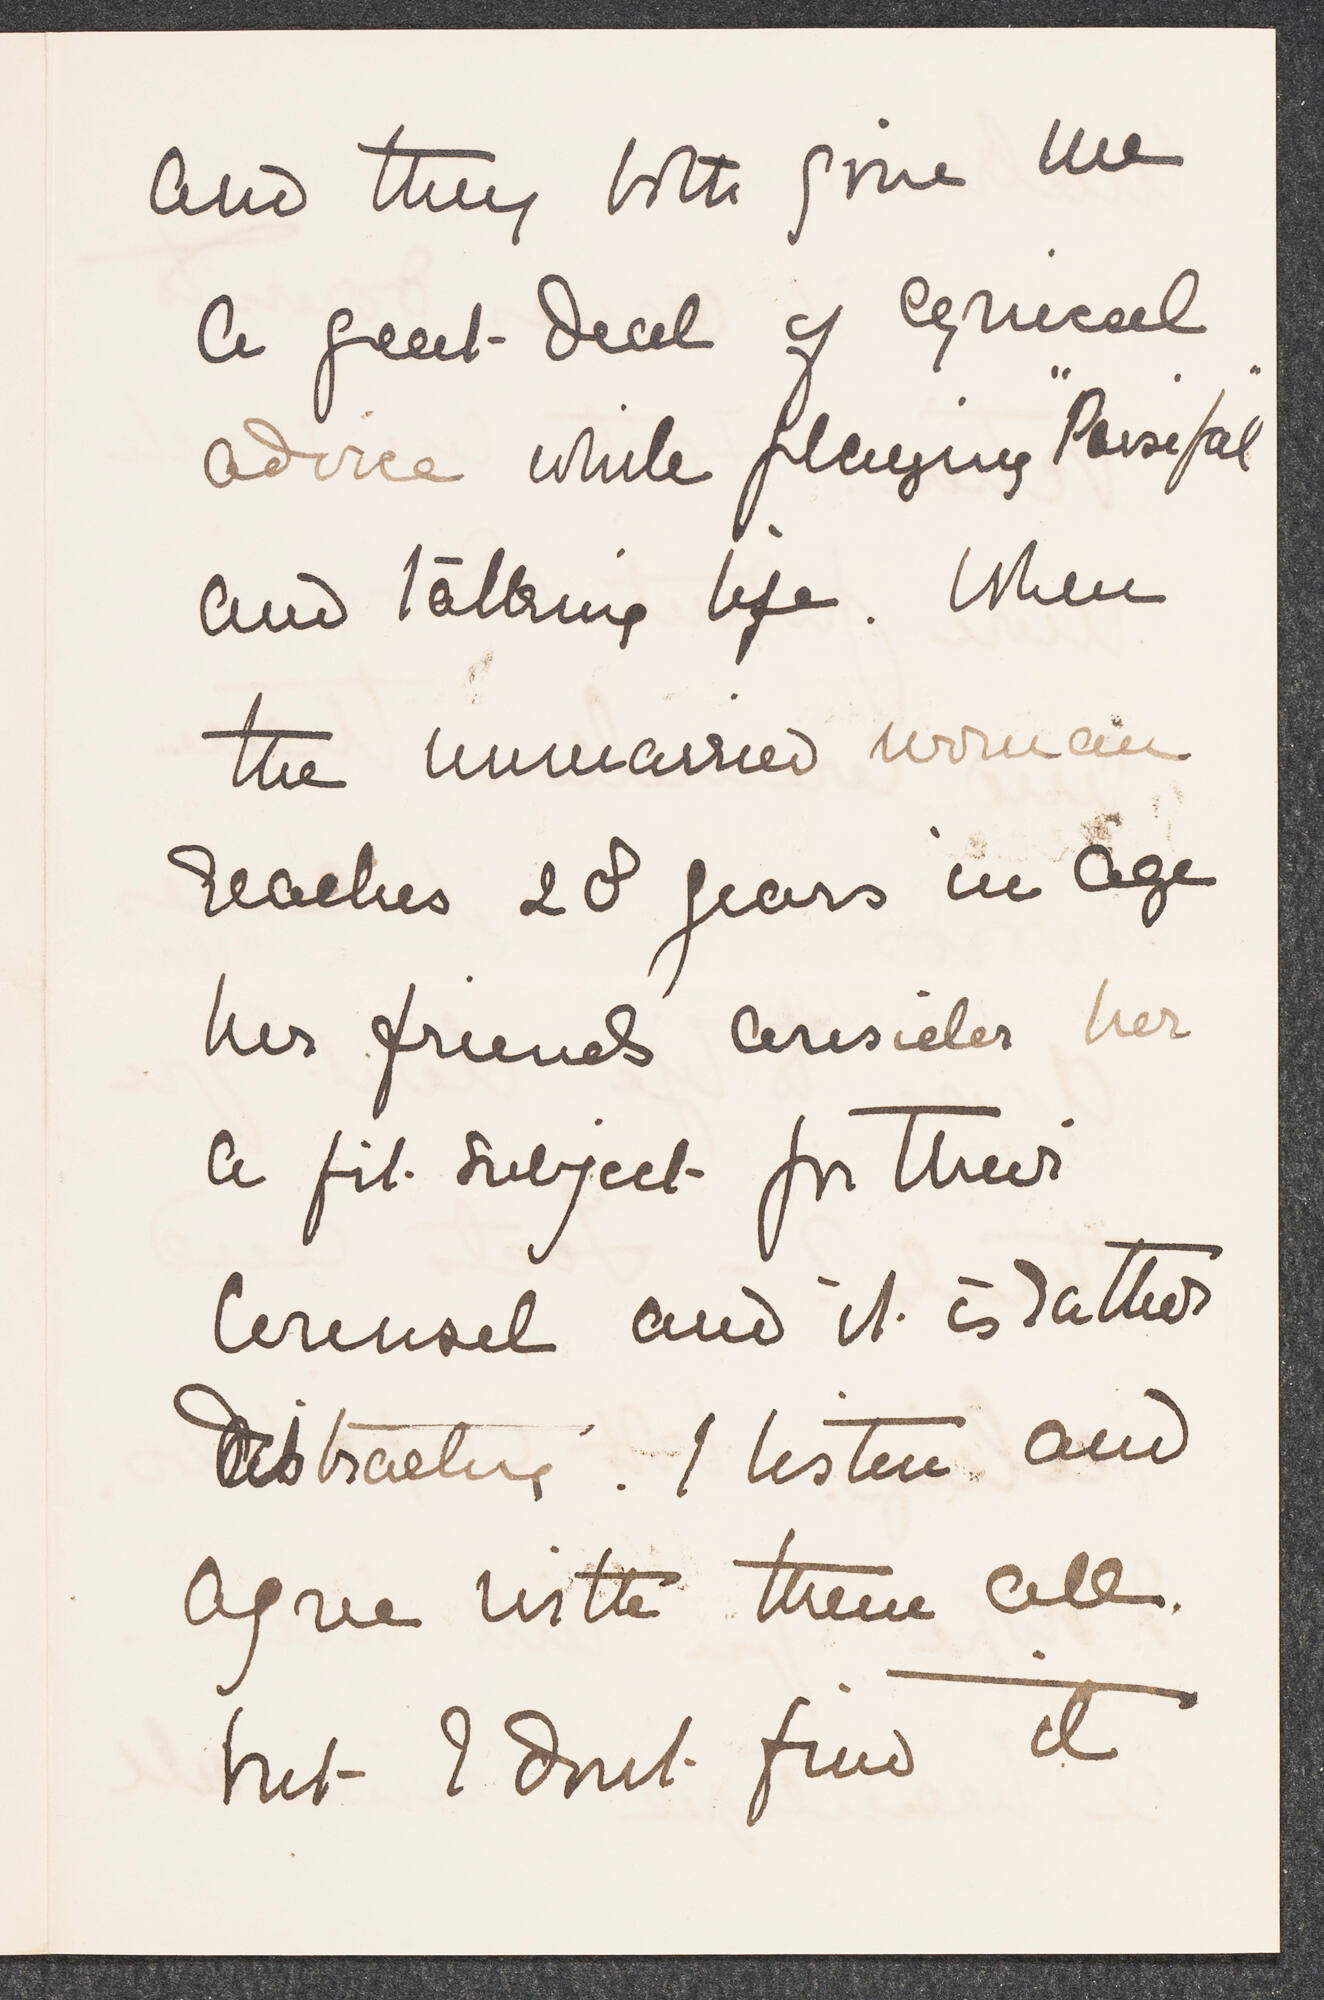 and they both give me
a great deal of cynical
advice while playing "Parsifal"
and talking life. When
the unmarried woman
reaches 28 years in age
her friends consider her
a fit subject for their
Counsel and it is rather
distracting. I listen and
agree with them all.
but I dont find it